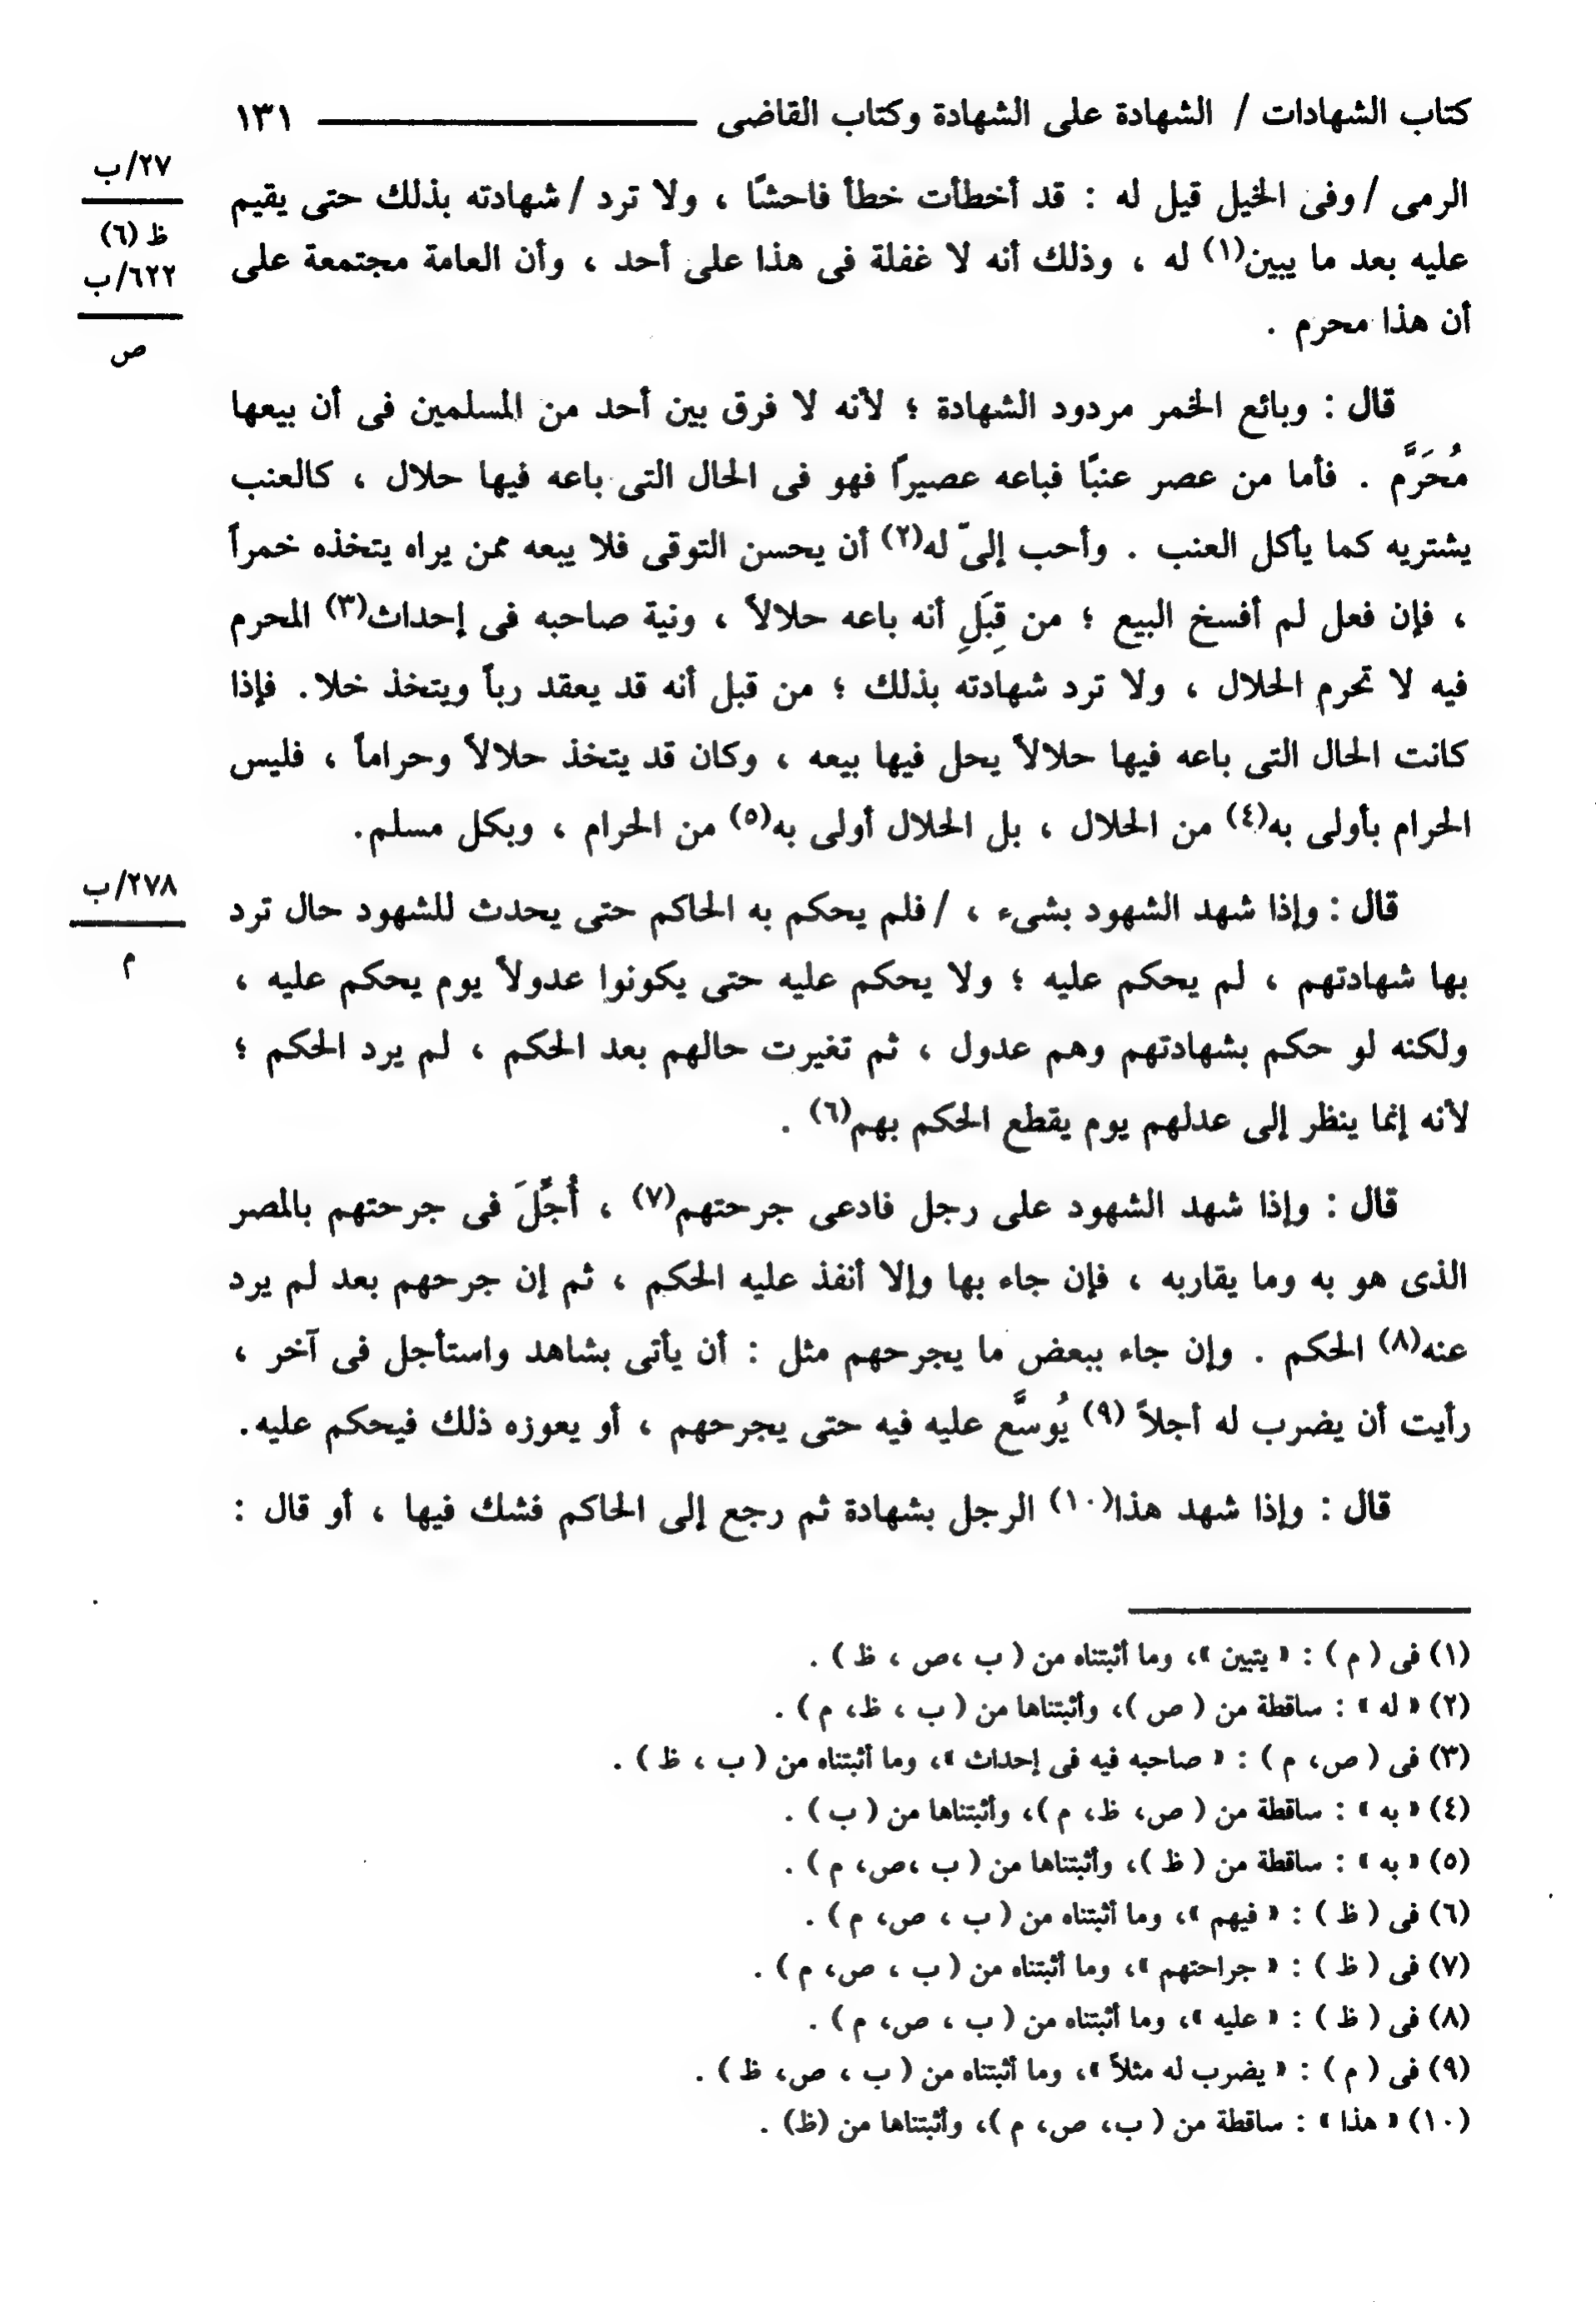 كتاب الشهادات / الشهادة على الشهادة وكتاب القاضى ــــــــــــ ١٣١
٢٧/ب
ظ (٦)
٦٢٢/ب
ص
الرمى / وفى الخيل قيل له : قد أخطأت خطأ فاحشًا ، ولا ترد / شهادته بذلك حتى يقيم
عليه بعد ما يبين(١) له ، وذلك أنه لا غفلة فى هذا على أحد ، وأن العامة مجتمعة على
أن هذا محرم .
قال : وبائع الخمر مردود الشهادة ؛ لأنه لا فرق بين أحد من المسلمين فى أن بيعها
مُحَرَّم . فأما من عصر عنبًا فباعه عصيرًا فهو فى الحال التى باعه فيها حلال ، كالعنب
يشتريه كما يأكل العنب . وأحب إلىّ له(٢) أن يحسن التوقى فلا يبعه ممن يراه يتخذه خمراً
، فإن فعل لم أفسخ البيع ؛ من قِبَلِ أنه باعه حلالاً ، ونية صاحبه فى إحداث(٣) المحرم
فيه لا تحرم الحلال ، ولا ترد شهادته بذلك ؛ من قبل أنه قد يعقد رباً ويتخذ خلا. فإذا
كانت الحال التى باعه فيها حلالاً يحل فيها بيعه ، وكان قد يتخذ حلالاً وحراماً ، فليس
الحرام بأولى به(٤) من الحلال ، بل الحلال أولى به(٥) من الحرام ، وبكل مسلم.
٢٧٨/ب
م
قال : وإذا شهد الشهود بشىء ، / فلم يحكم به الحاكم حتى يحدث للشهود حال ترد
بها شهادتهم ، لم يحكم عليه ؛ ولا يحكم عليه حتى يكونوا عدولاً يوم يحكم عليه ،
ولكنه لو حكم بشهادتهم وهم عدول ، ثم تغيرت حالهم بعد الحكم ، لم يرد الحكم ؛
لأنه إنما ينظر إلى عدلهم يوم يقطع الحكم بهم(٦) .
قال : وإذا شهد الشهود على رجل فادعى جرحتهم(٧) ، أُجِّلَ فى جرحتهم بالمصر
الذى هو به وما يقاربه ، فإن جاء بها وإلا أنفذ عليه الحكم ، ثم إن جرحهم بعد لم يرد
عنه(٨) الحكم . وإن جاء ببعض ما يجرحهم مثل : أن يأتى بشاهد واستأجل فى آخر ،
رأيت أن يضرب له أجلاً (٩) يُوسَّع عليه فيه حتى يجرحهم ، أو يعوزه ذلك فيحكم عليه.
قال : وإذا شهد هذا(١٠) الرجل بشهادة ثم رجع إلى الحاكم فشك فيها ، أو قال :
(١) فى ( م ) : « يتبين »، وما أثبتناه من ( ب ،ص ، ظ ) .
(٢) « له » : ساقطة من ( ص )، وأثبتناها من ( ب ، ظ، م ) .
(٣) فى ( ص، م ) : « صاحبه فيه فى إحداث »، وما أثبتناه من ( ب ، ظ ) .
(٤) « به » : ساقطة من ( ص، ظ، م )، وأثبتناها من ( ب ) .
(٥) « به » : ساقطة من ( ظ )، وأثبتناها من ( ب ،ص، م ) .
(٦) فى ( ظ ) : « فيهم »، وما أثبتناه من ( ب ، ص، م ) .
(٧) فى ( ظ ) : « جراحتهم »، وما أثبتناه من ( ب ، ص، م ) .
(٨) فى ( ظ ) : « عليه »، وما أثبتناه من ( ب ، ص، م ) .
(٩) فى ( م ) : « يضرب له مثلاً »، وما أثبتناه من ( ب ، ص، ظ ) .
(١٠) « هذا » : ساقطة من ( ب، ص، م )، وأثبتناها من (ظ) .